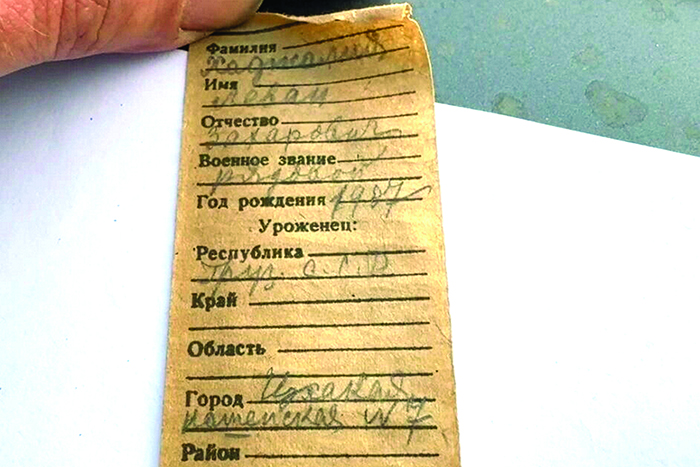 Фамилия
Хаджалия
Имя
Леван
Отчество
Захарович
Военное звание
рядовой
Год рождения 1907
Уроженец:
Республика
Груз. С.С.Р.
Край
Область
Город Цхакая
№ 7
Район